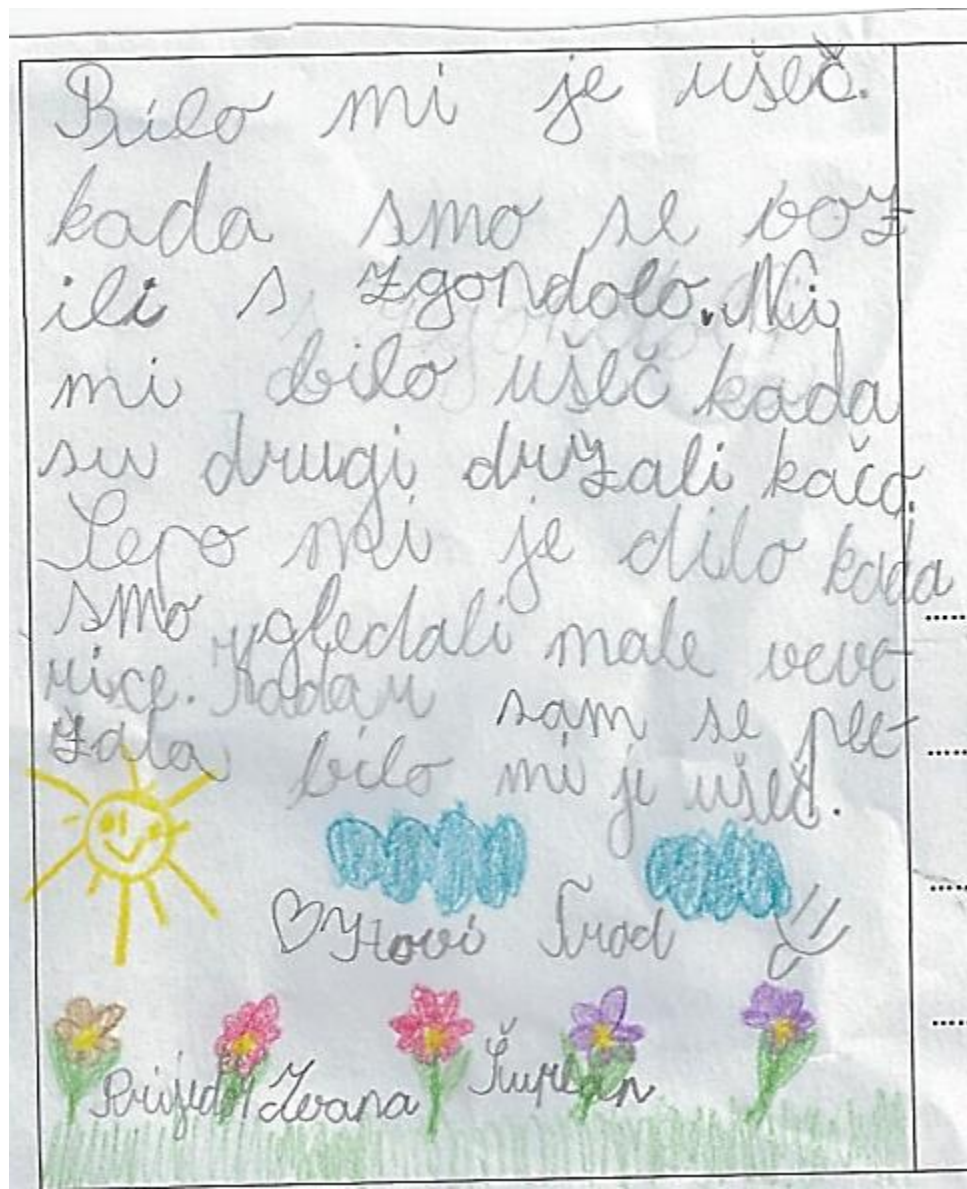 Bilo mi je ušeč.
kada smo se voz
ili s zgondolo. Ni
mi bilo ušeč kada
su drugi držali kačo.
Lepo mi je bilo kada
smo gledali male veve
rice. Kada sam se pel
zala bilo mi je ušeč.
Novi Grad
Ivana